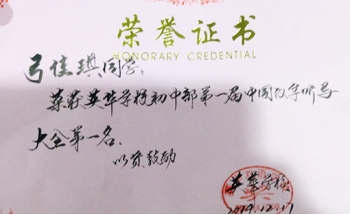 荣誉证书
HONORARY CREDENTIAL
弓佳琪同学:
荣获英华学校初中部第一届中国汉字听写
大会第一名。
以资鼓励
英华学校
2019.12.17